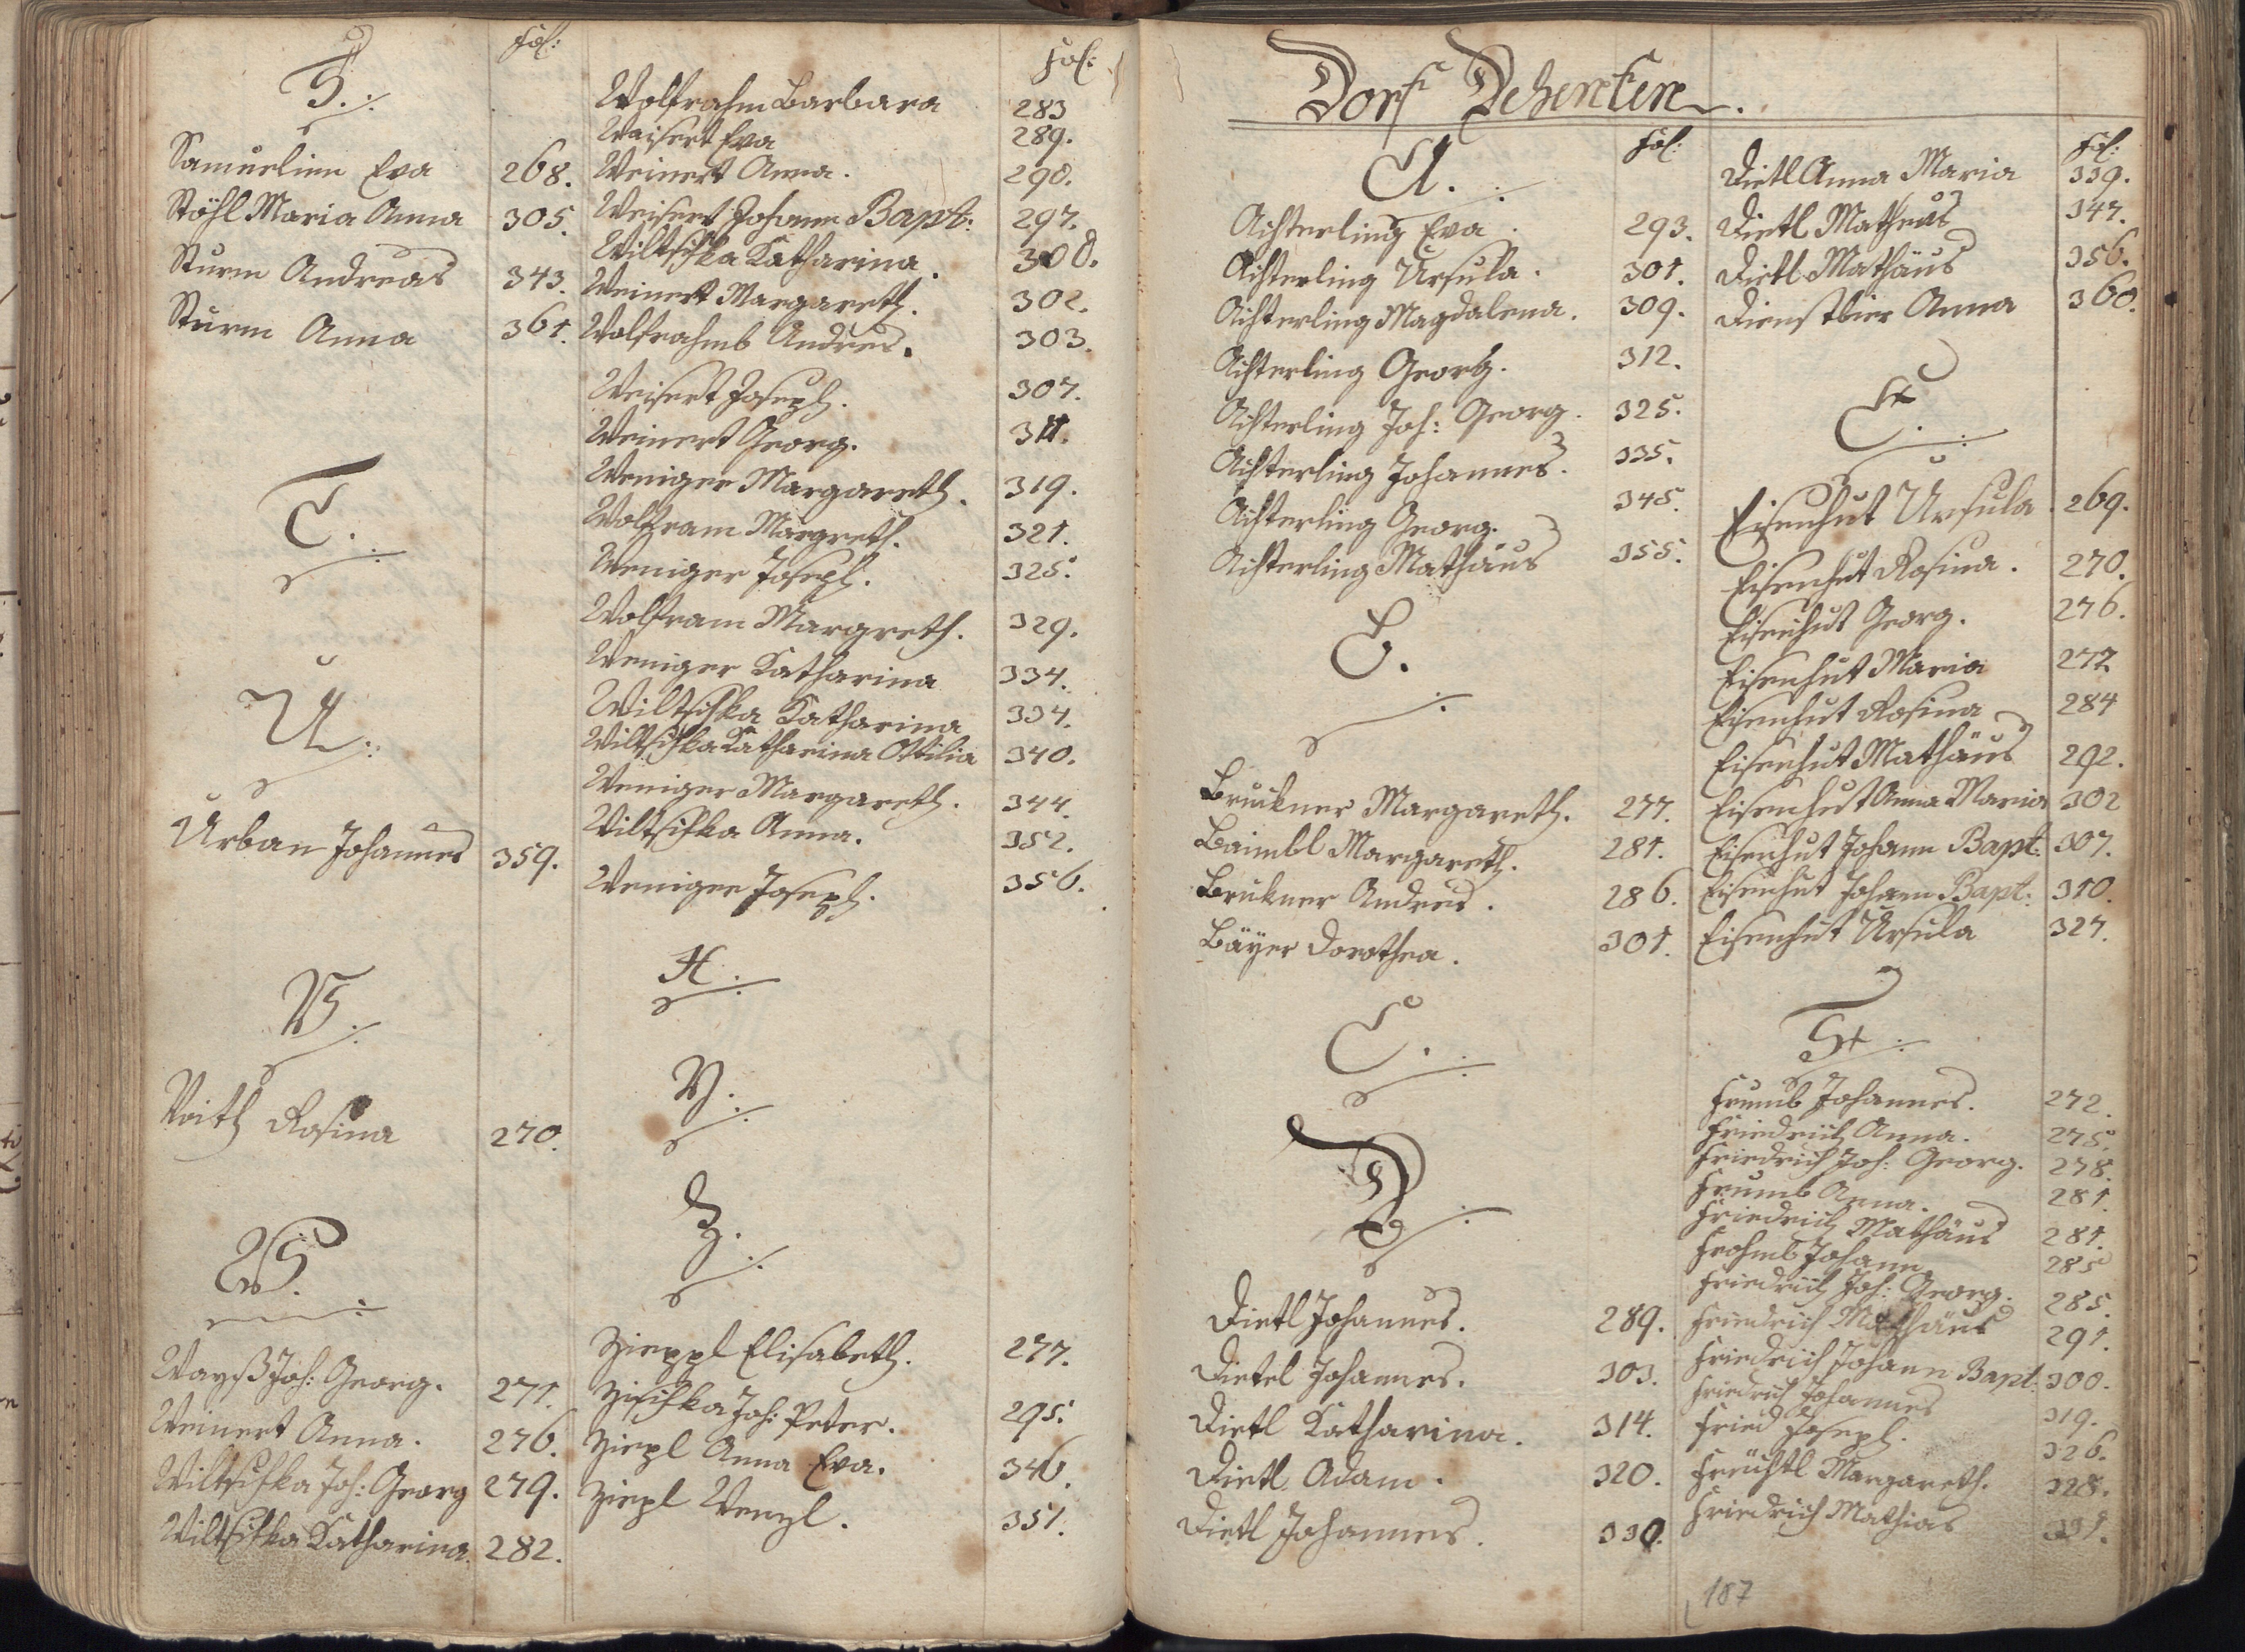 Fol:
S.
Samuelin Eva 268.
Stöhl Maria Anna 305.
Sturm Andreas 343.
Sturm Anna 361.
T.
U.
Urban Johannes 359.
V.
Voith Rosina 270.
W.
Wayß Joh: Georg. 271.
Weinert Anna. 276.
Wiltschka Joh: Georg 279.
Wiltschka Katharina. 282.
Fol:
Wolfrahm Barbara 283
Waisert Eva 289.
Weinert Anna. 290.
Weisert Johann Bapt: 297.
Wiltschka Katharina. 300.
Weinert Margareth. 302.
Wolfrahmb Andres. 303.
Weisert Joseph. 307.
Weinert Georg. 311.
Weniger Margareth. 319.
Wolfram Margreth. 321.
Weniger Joseph. 325.
Wolfram Margreth. 329.
Weniger Katharina 334.
Wiltschka Katharina 334.
Wiltschka Katharina Ottilia 340.
Weniger Margareth. 344.
Wiltschka Anna. 352.
Weniger Joseph. 356.
X.
Y.
Z.
Zieppl Elisabeth. 277.
Zischka Joh: Peter. 295.
Ziepl Anna Eva. 346.
Ziepl Wenzl. 351.
Dorf
Fol:
A.
Achterling Eva. 293.
Achterling Ursula. 301.
Achterling Magdalena. 309.
Achterling Georg. 312.
Achterling Joh: Georg. 325.
Achterling Johannes. 335.
Achterling Georg. 345.
Achterling Mathäus 355.
B.
Bruckner Margareth. 277.
Baimbl Margareth. 281.
Brukner Andres. 286.
Bäyer Dorothea. 301.
C.
D.
Dietl Johannes. 289.
Dietel Johannes. 303.
Dietl Katharina. 314.
Dietl Adam. 320.
Dietl Johannes. 330.
Fol:
Dietl Anna Maria 339.
Dietl Matheus 347.
Dietl Mathäus 356.
Dienstbier Anna 360.
E.
Eisenhut Ursula. 269.
Eisenhut Rosina. 270.
Eisenhut Georg. 276.
Eisenhut Maria 277
Eisenhut Rosina 284
Eisenhut Mathäus 292.
Eisenhut Anna Maria 302
Eisenhut Johann Bapt: 307.
Eisenhut Johann Bapt: 310.
Eisenhut Ursula 327.
F.
Frumb Johannes. 272.
Friedrich Anna. 275.
Friedrich Joh: Georg. 278.
Frumb Anna. 281.
Friedrich Mathäus 281.
Frohmb Johann 285
Friedrich Joh: Georg. 285.
Friedrich Mathäus 291.
Friedrich Johann Bapt: 300.
Friedrich Johannes 319.
Fried Joseph. 326.
Früchtl Margareth. 328.
Friedrich Mathias 331.
187